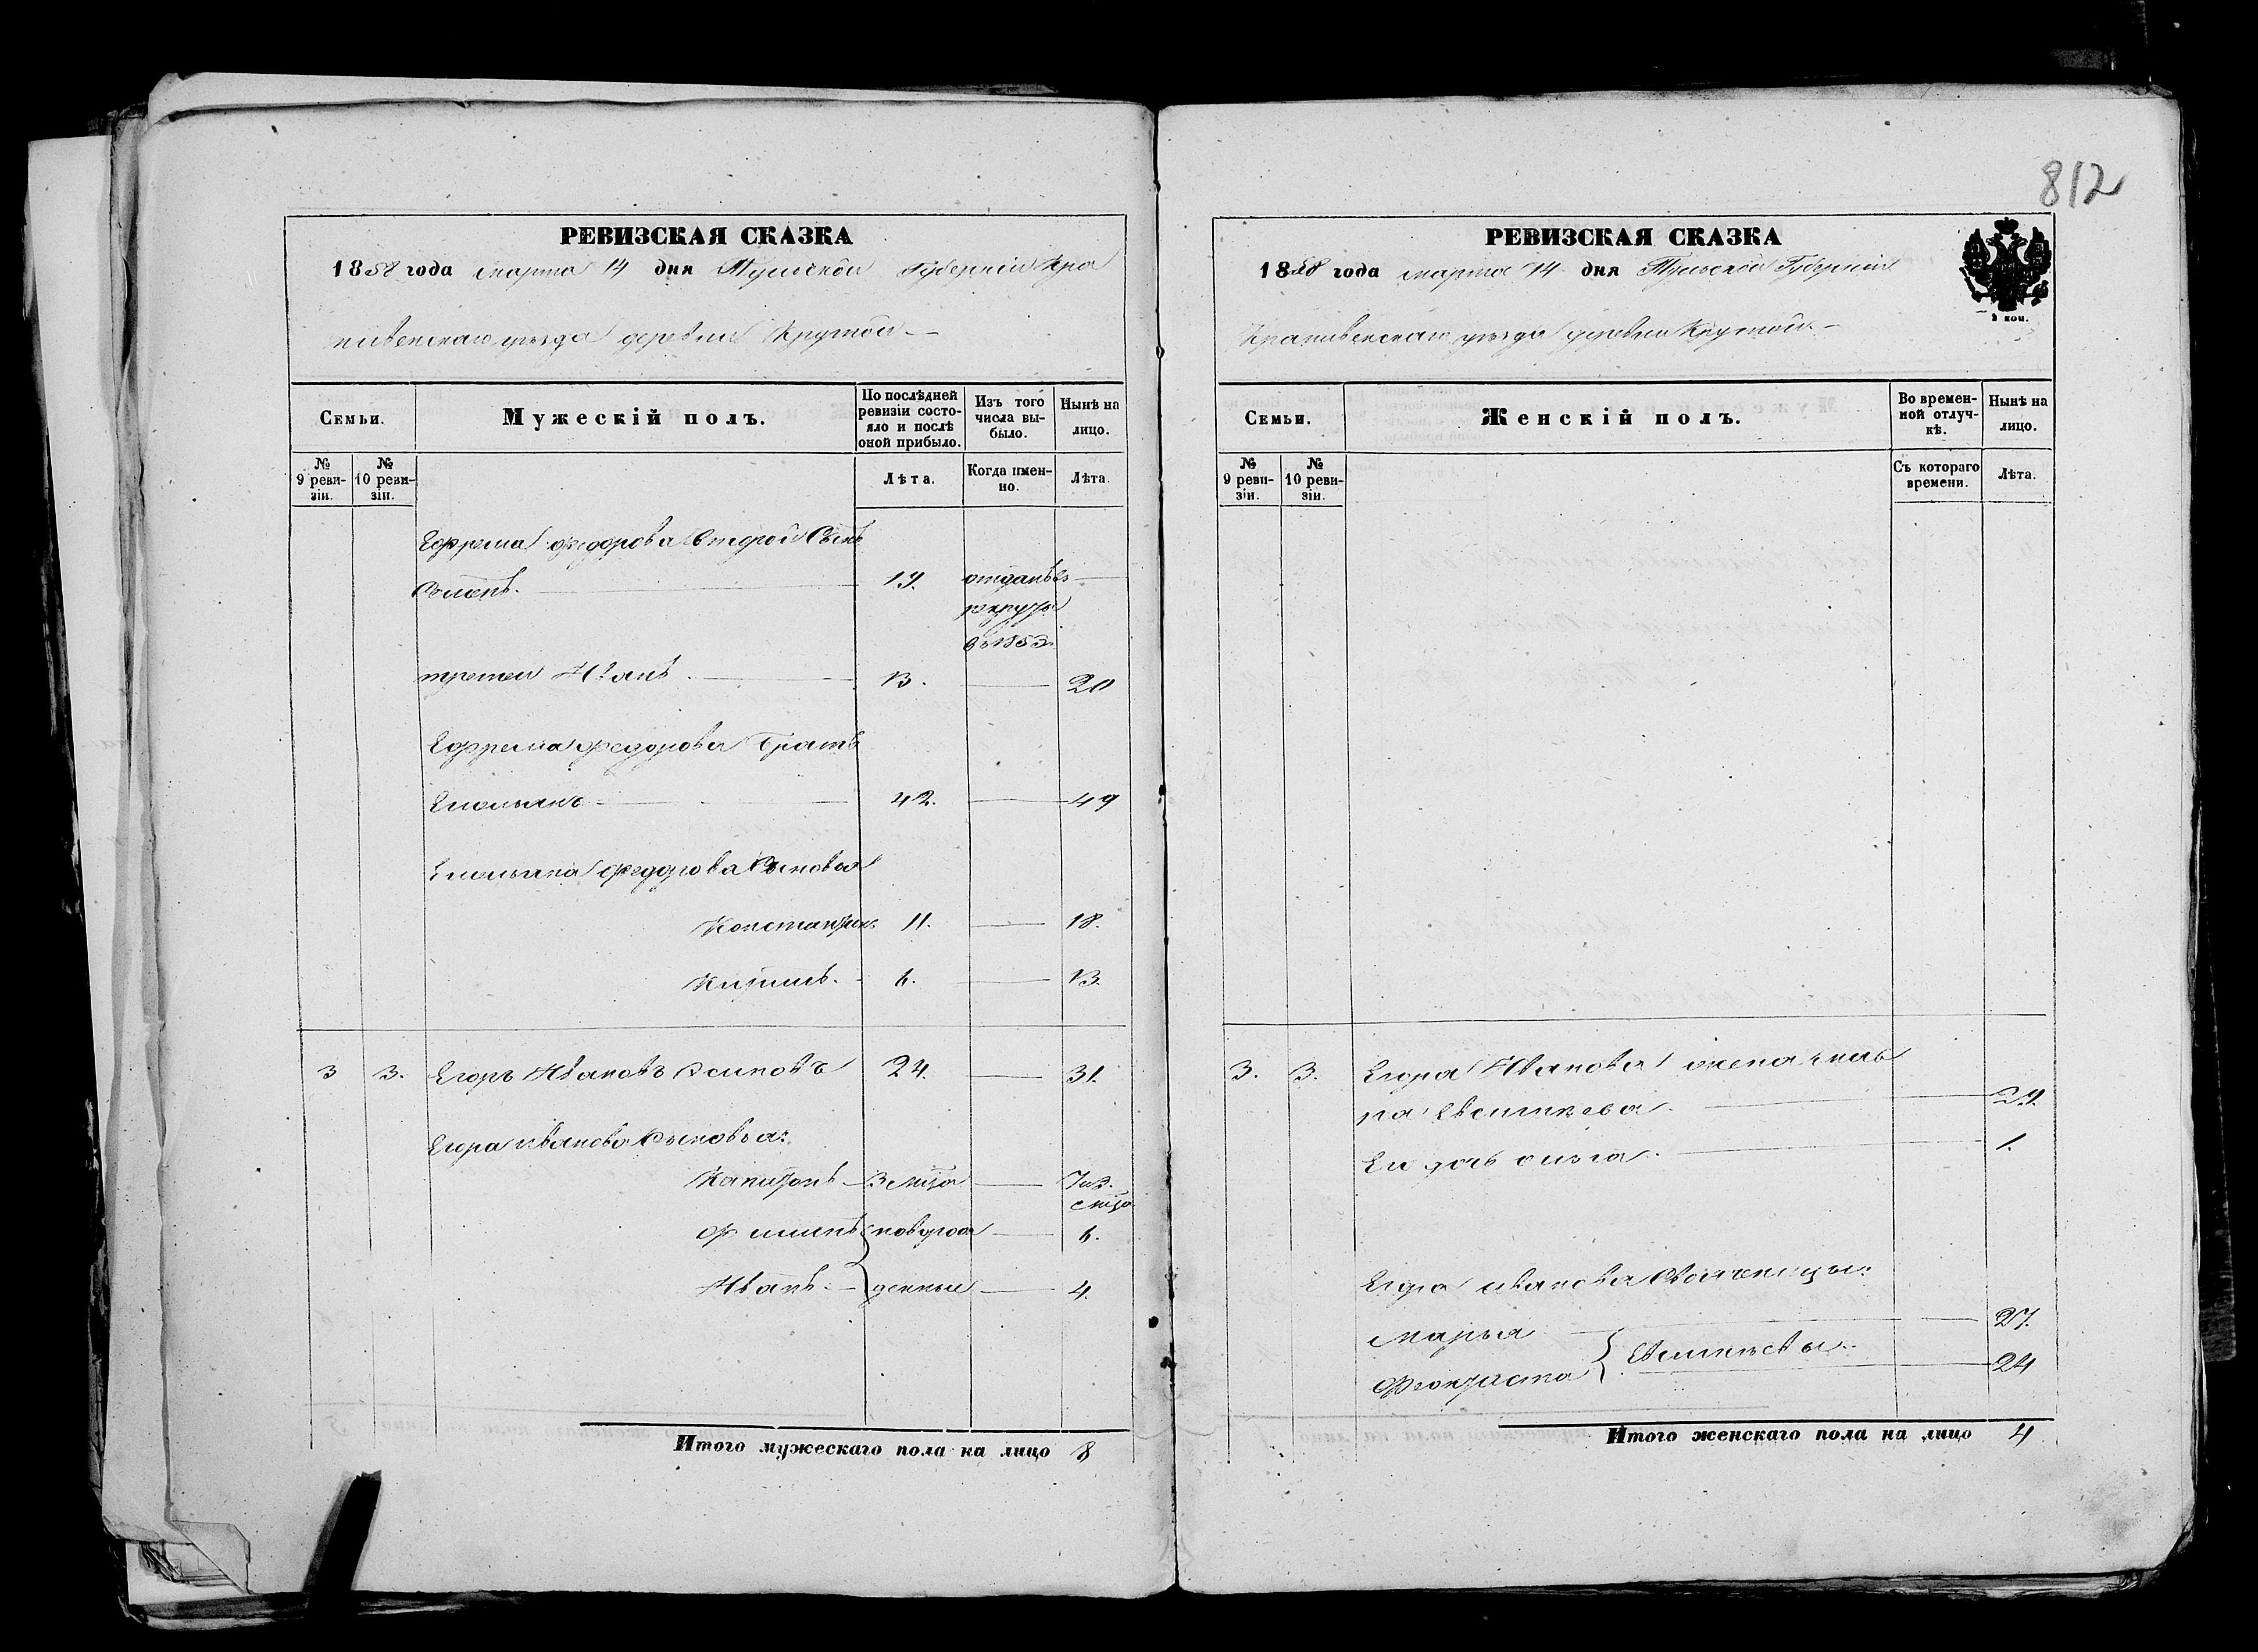 812
РЕВИЗСКАЯ СКАЗКА
1858 года марта 14 дня Тульской Губернiи Кра
пивенскаго уѣзда деревни Крутой
Семьи.
Мужескій полъ.
По послѣдней ревизіи состояло и послѣ оной прибыло.
Изъ того числа выбыло.
Нынѣ на лицо.
№ 9 ревизіи.
№ 10 ревизіи.
Лѣта.
Когда именно.
Лѣта.
Ефрема Федорова второй Сынъ
19. отданъ въ
рекруты
въ 1853
третей Иванъ. 13. 20
Ефрема Федорова Братъ
Емельянъ 42. 49
Емельяна Федорова Сыновья
Константинъ 11. 18.
6. 13.
3 3. Егоръ Ивановъ Осиповъ 24. 31.
Егора Иванова Сыновья:
Капитонъ 3 мца 7 и 3. мца
Филипъ новорож 6.
Иванъ. денные 4.
Итого мужескаго пола на лицо 8
РЕВИЗСКАЯ СКАЗКА
1858 года марта 14 дня Тульской Губернiи
Крапивенскаго уѣзда деревни Крутой
2 коп.
Семьи.
Женскій полъ.
Во временной отлучкѣ.
Нынѣ на лицо.
№ 9 ревизіи.
№ 10 ревизіи.
Съ котораго времени.
Лѣта.
3. 3. Егора Иванова жена
29.
Ея дочь 1.
Егора Иванова
Марья 27.
Феоктиста 24
Итого женскаго пола на лицо 4